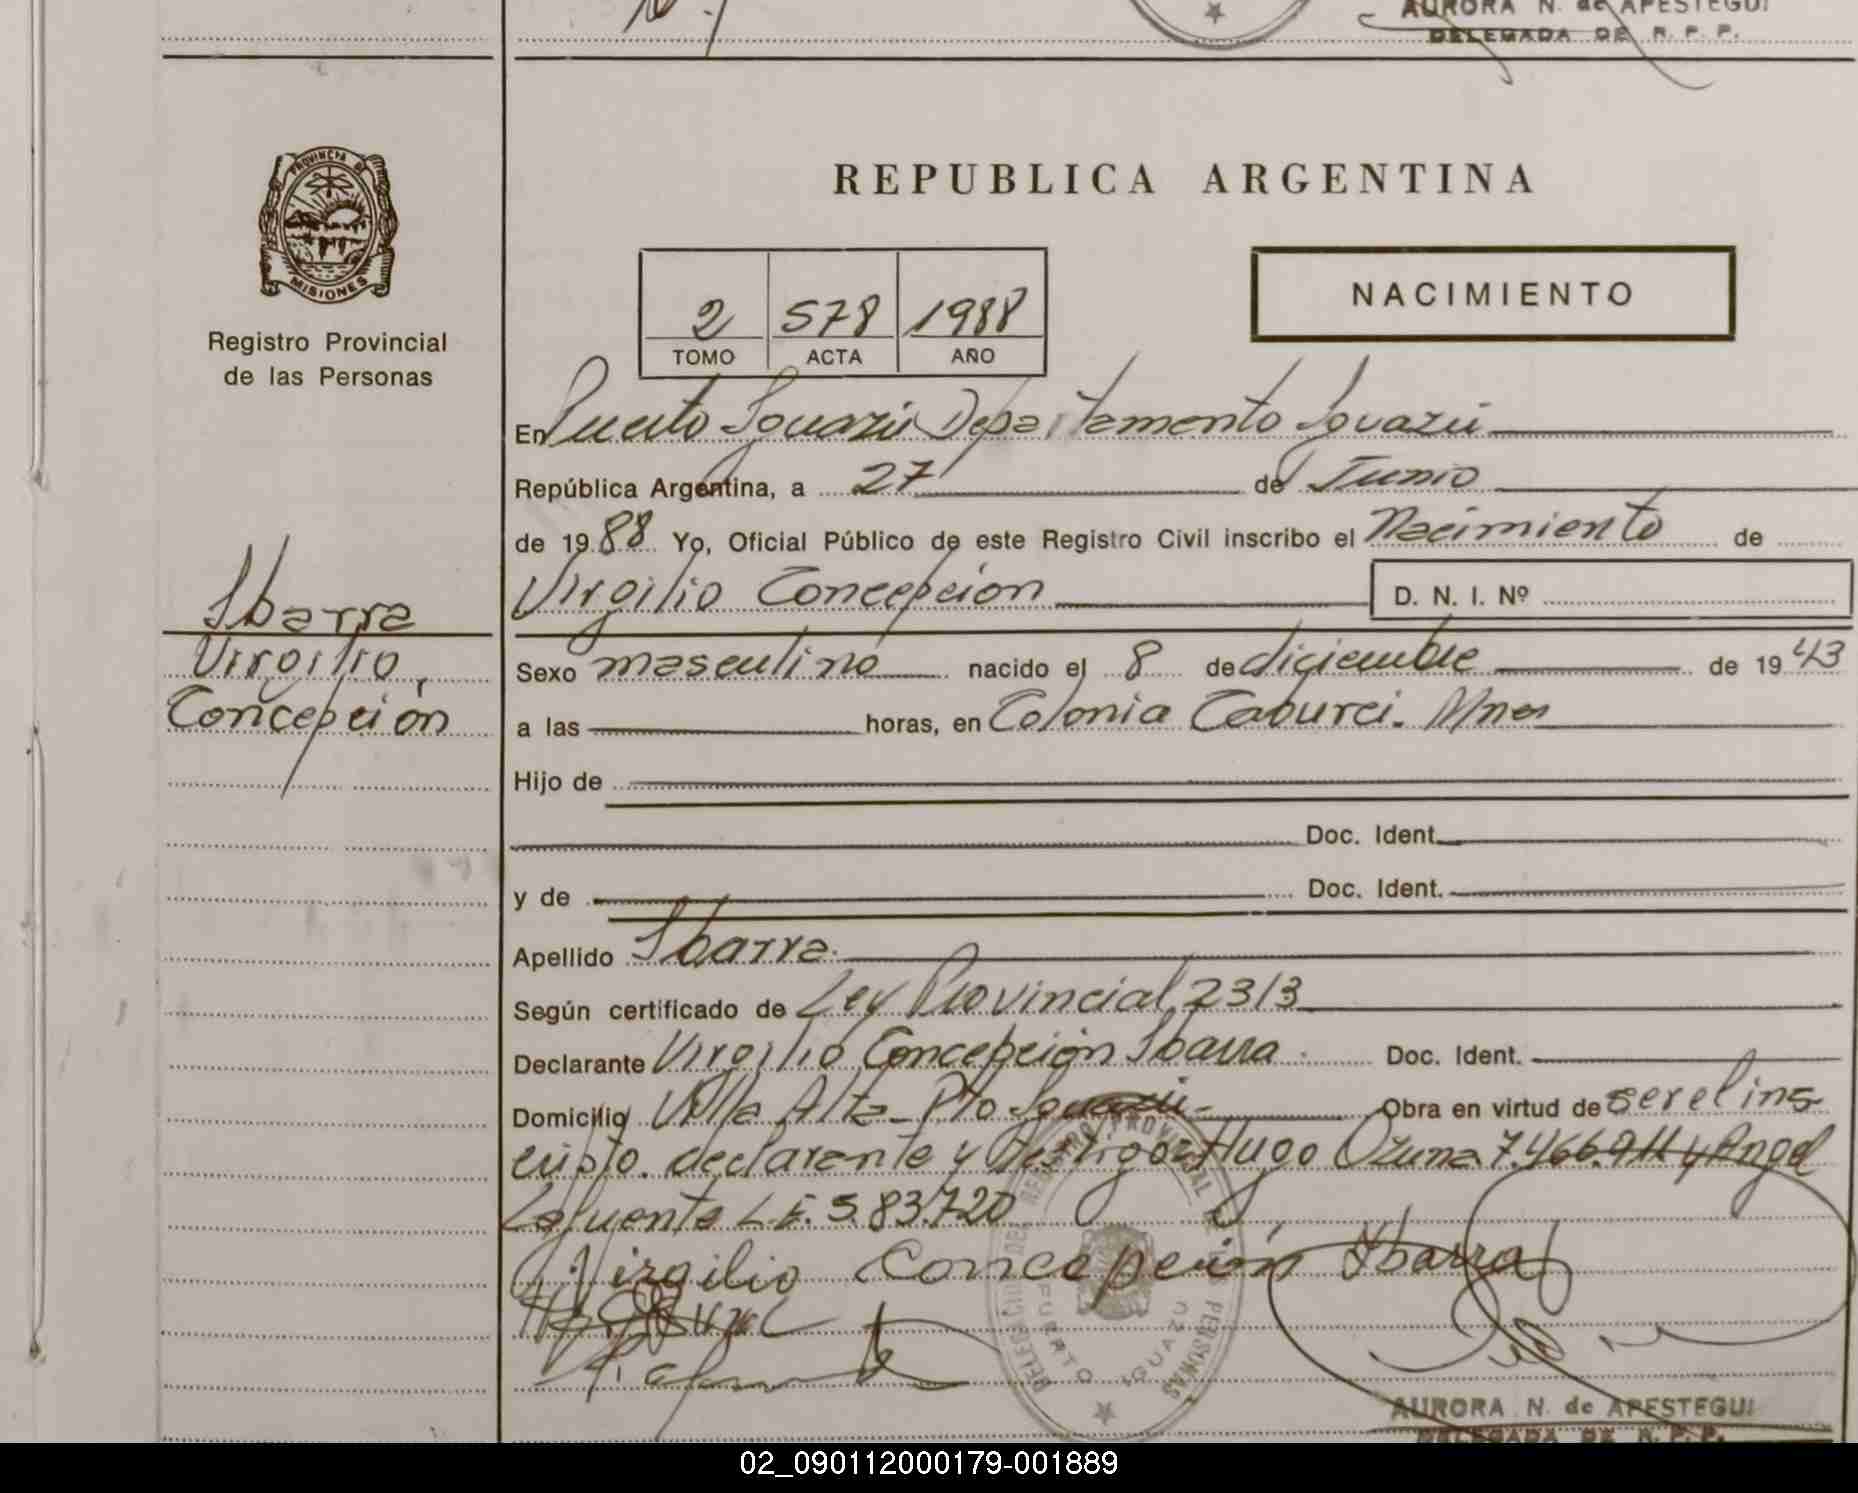 AURORA N. de APESTEGUI
DELEGADA DE R. P. P.
PROVINCIA DE
MISIONES
Registro Provincial
de las Personas
REPUBLICA ARGENTINA
2 578 1988
TOMO ACTA AÑO
NACIMIENTO
En Puerto Iguazú Departamento Iguazú
República Argentina, a 27 de Junio
de 1988 Yo, Oficial Público de este Registro Civil inscribo el Nacimiento de
Virgilio Concepción D. N. I. Nº
Ibarra
Virgilio
Concepción
Sexo masculino nacido el 8 de diciembre de 1943
a las horas, en Colonia Taburei. Mnes
Hijo de
Doc. Ident.
y de Doc. Ident.
Apellido Ibarra.
Según certificado de Ley Provincial 2313
Declarante Virgilio Concepción Ibarra Doc. Ident.
Domicilio Villa Alta - Pto Iguazú - Obra en virtud de ser el ins-
cripto. declarante y testigos Hugo Ozuna 7.466.911 y Angel
Lafuente L.E. 5.83.720
Virgilio Concepción Ibarra
DELEGACION DEL REGISTRO PROVINCIAL DE LAS PERSONAS
PUERTO IGUAZU
AURORA N. de APESTEGUI
DELEGADA DE R. P. P.
02_090112000179-001889